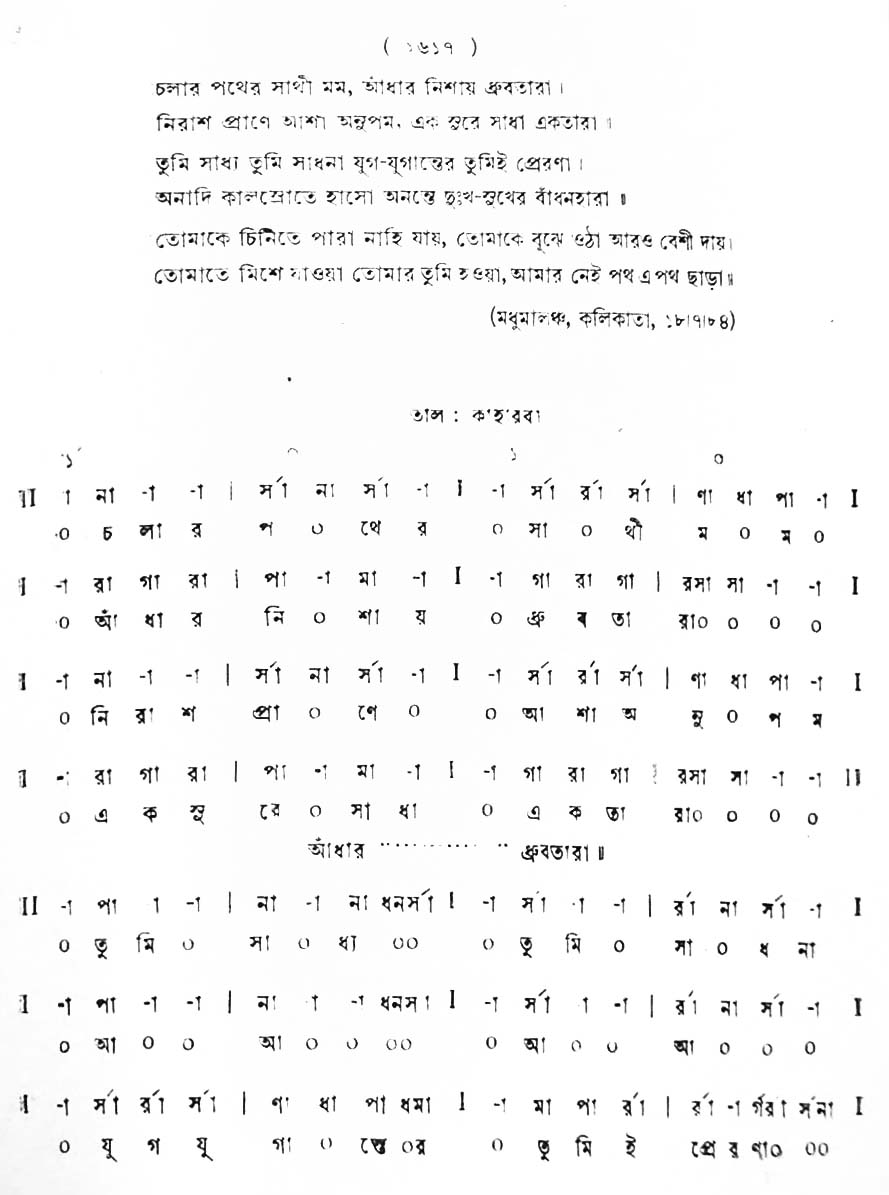 ( ১৬১৭ )
চলার পথের সাথী মম, আঁধার নিশায় ধ্রুবতারা।
নিরাশ প্রাণে আশা অনুপম, এক সুরে সাধা একতারা॥
তুমি সাধ্য তুমি সাধনা যুগ-যুগান্তের তুমিই প্রেরণা।
অনাদি কালস্রোতে হাসো অনন্তে দুঃখ-সুখের বাঁধনহারা॥
তোমাকে চিনিতে পারা নাহি যায়, তোমাকে বুঝে ওঠা আরও বেশী দায়।
তোমাতে মিশে যাওয়া তোমার তুমি হওয়া, আমার নেই পথ এ পথ ছাড়া॥
(মধুমালঞ্চ, কলিকাতা, ১৮।৭।৮৪)
তাল : কাহারবা
১´ ০ ১ ০
II া না -া -া | র্সা না র্সা -া I -া র্সা র্রা র্সা | ণা ধা পা -া I
০ চ লা র প ০ থে র ০ সা ০ থী ম ০ ম ০
I -া রা গা রা | পা -া মা -া I -া গা রা গা | রসা সা -া -া I
০ আঁ ধা র নি ০ শা য় ০ ধ্রু ব তা রা০ ০ ০ ০
I -া না -া -া | র্সা না র্সা -া I -া র্সা র্রা র্সা | ণা ধা পা -া I
০ নি রা শ প্রা ০ ণে ০ ০ আ শা অ নু ০ প ম
I -া রা গা রা | পা -া মা -া I -া গা রা গা | রসা সা -া -া II
০ এ ক সু রে ০ সা ধা ০ এ ক তা রা০ ০ ০ ০
আঁধার ············ ধ্রুবতারা॥
II -া পা া -া | না -া না ধনর্সা I -া র্সা -া -া | র্রা না র্সা -া I
০ তু মি ০ সা ০ ধ্য ০০ ০ তু মি ০ সা ০ ধ না
I -া পা -া -া | না া -া ধনসা I -া র্সা া -া | র্রা না র্সা -া I
০ আ ০ ০ আ ০ ০ ০০ ০ আ ০ ০ আ ০ ০ ০
I -া র্সা র্রা র্সা | ণা ধা পা ধমা I -া মা পা র্রা | র্রা -া র্গর্রা র্সনা I
০ যু গ যু গা ০ ন্তে ০র ০ তু মি ই প্রে র ণা০ ০০